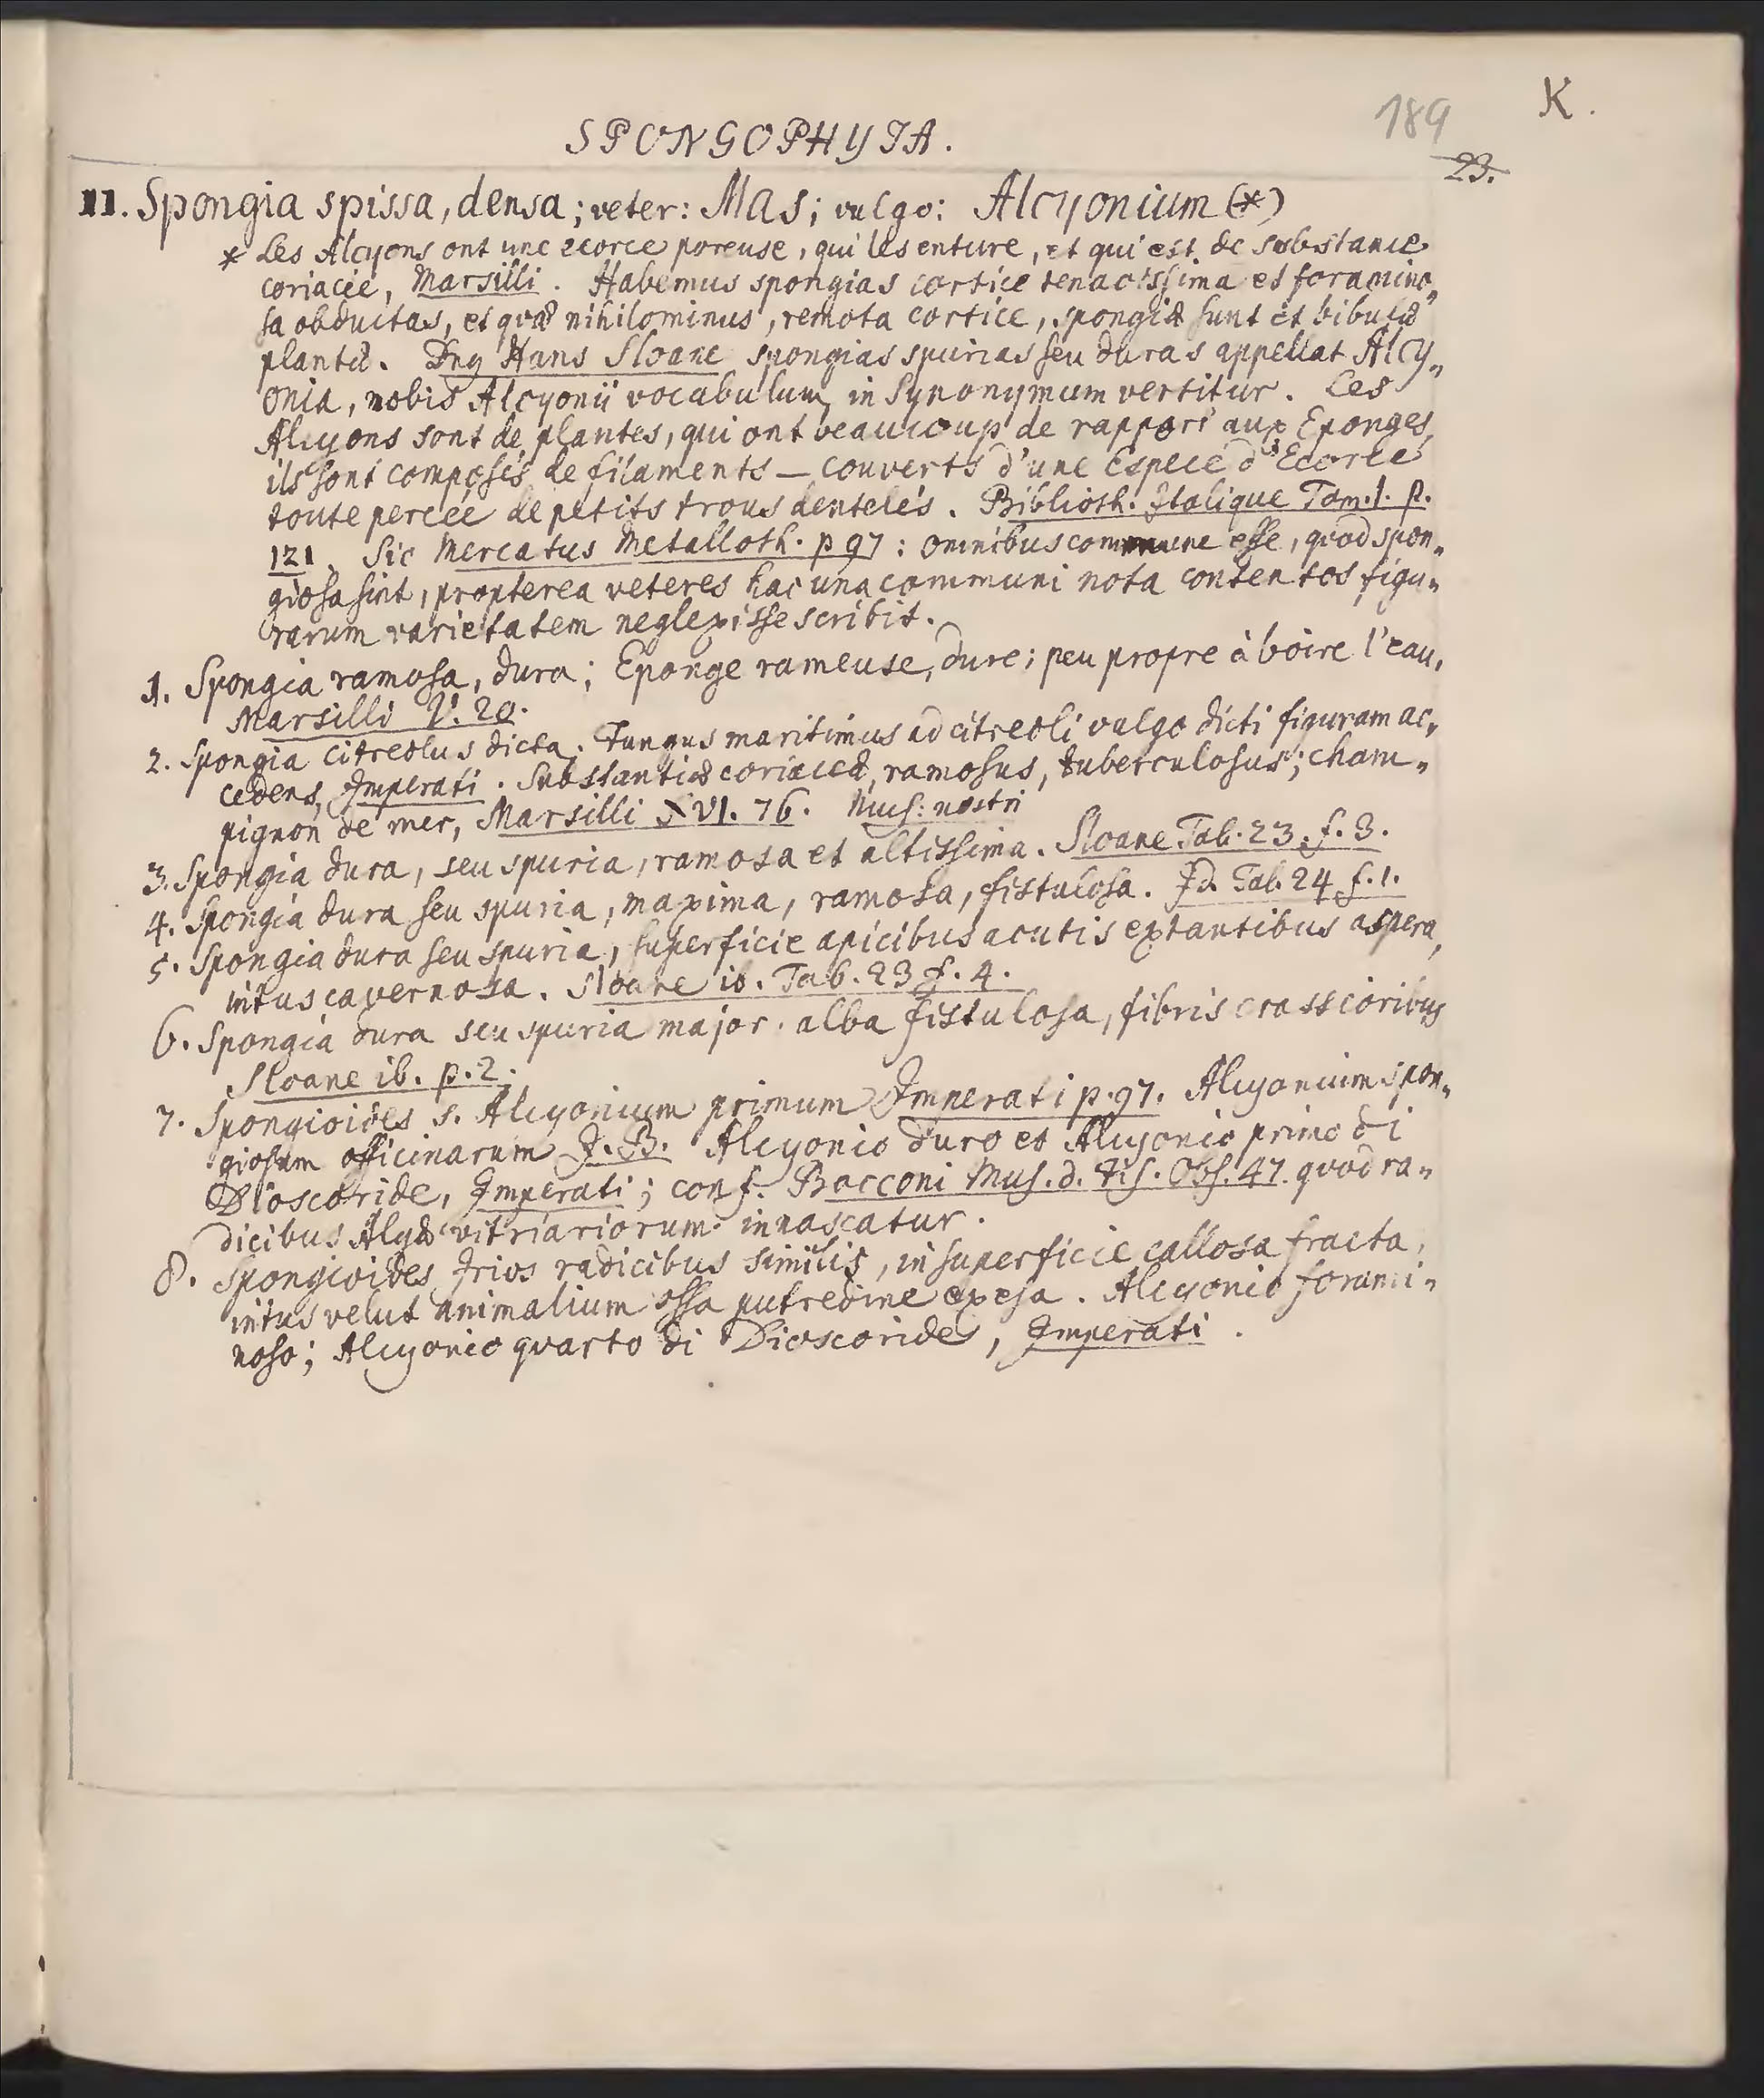 K.
189
SPONGOPHYTA.
23.
II. Spongia spissa, densa; veter: Mas; vulgo: Alcyonium (*)
* Les Alcyons ont une ecorce poreuse, qui les enture, et qui est de substance
coriacée, Marsilli. Habemus spongias cortice tenacissima et foramino„
sa obductas, et quæ nihilominus, remota cortice, spongiæ sunt et bibulæ
plantæ. Dnꝯ Hans Sloane spongias spurias seu duras appellat Alcy„
onia, nobis Alcyonii vocabulum in Synonymum vertitur. Les
Alcyons sont de plantes, qui ont beaucoup de rapport aux Eponges,
ils sont composés de filaments — couverts d'une Espece d'Ecorce
toute percée de petits trous dentelés. Biblioth. Italique Tom. I. p.
121. Sic Mercatus Metalloth. p 97: omnibus commune esse, quod spon„
giosa sint, propterea veteres hac una communi nota contentos, figu„
rarum varietatem neglexisse scribit.
1. Spongia ramosa, dura; Eponge rameuse, dure; peu propre à boire l'eau,
Marsilli V. 20.
2. Spongia citreolus dicta. Fungus maritimus ad citreoli vulgo dicti figuram ac„
cedens, Imperati. Substantiæ coriaceæ, ramosus, tuberculosus; cham„
pignon de mer, Marsilli XVI. 76. Mus: nostri
3. Spongia dura, seu spuria, ramosa et altissima. Sloane Tab. 23. f. 3.
4. Spongia dura seu spuria, maxima, ramosa, fistulosa. Id. Tab. 24 f. 1.
5. Spongia dura seu spuria, superficie apicibus acutis extantibus aspera,
intus cavernosa. Sloane ib. Tab. 23 f. 4.
6. Spongia dura seu spuria major. alba fistulosa, fibris crassioribus
Sloane ib. p. 2.
7. Spongioides s. Alcyonium primum Imperati p. 97. Alcyonium spon„
giosum officinarum J. B. Alcyonio duro et Alcyonio primo di
Dioscoride, Imperati; conf. Bocconi Mus. d. Fis. Obs. 47. quod ra„
dicibus Algæ vitriariorum innascatur.
8. Spongioides Irios radicibus similis, in superficie callosa fracta,
intus velut animalium ossa putredine exesa. Alcyonio forami„
noso; Alcyonio quarto di Dioscoride, Imperati.